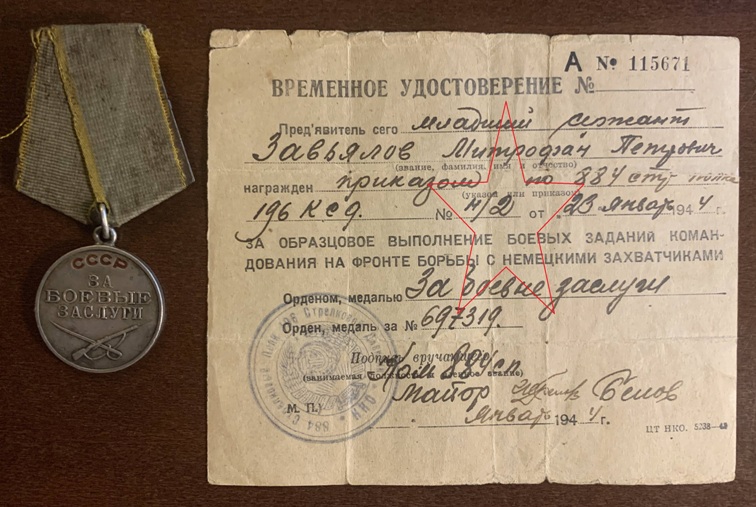 СССР
ЗА
БОЕВЫЕ
ЗАСЛУГИ
А № 115671
ВРЕМЕННОЕ УДОСТОВЕРЕНИЕ №
Пред'явитель сего младший сержант
Завьялов Митрофан Петрович
(звание, фамилия, имя и отчество)
награжден приказом по 884 стр полка
(указом или приказом)
196 КСД. № н/2 от 23 январь 1944 г.
ЗА ОБРАЗЦОВОЕ ВЫПОЛНЕНИЕ БОЕВЫХ ЗАДАНИЙ КОМАН-
ДОВАНИЯ НА ФРОНТЕ БОРЬБЫ С НЕМЕЦКИМИ ЗАХВАТЧИКАМИ
Орденом, медалью За боевые заслуги
Орден, медаль за № 697319.
Подпись вручающего
Ком 884 сп
(занимаемая должность и военное звание)
майор Белов
М. П.
Январь 1944 г.
ЦТ НКО.
884